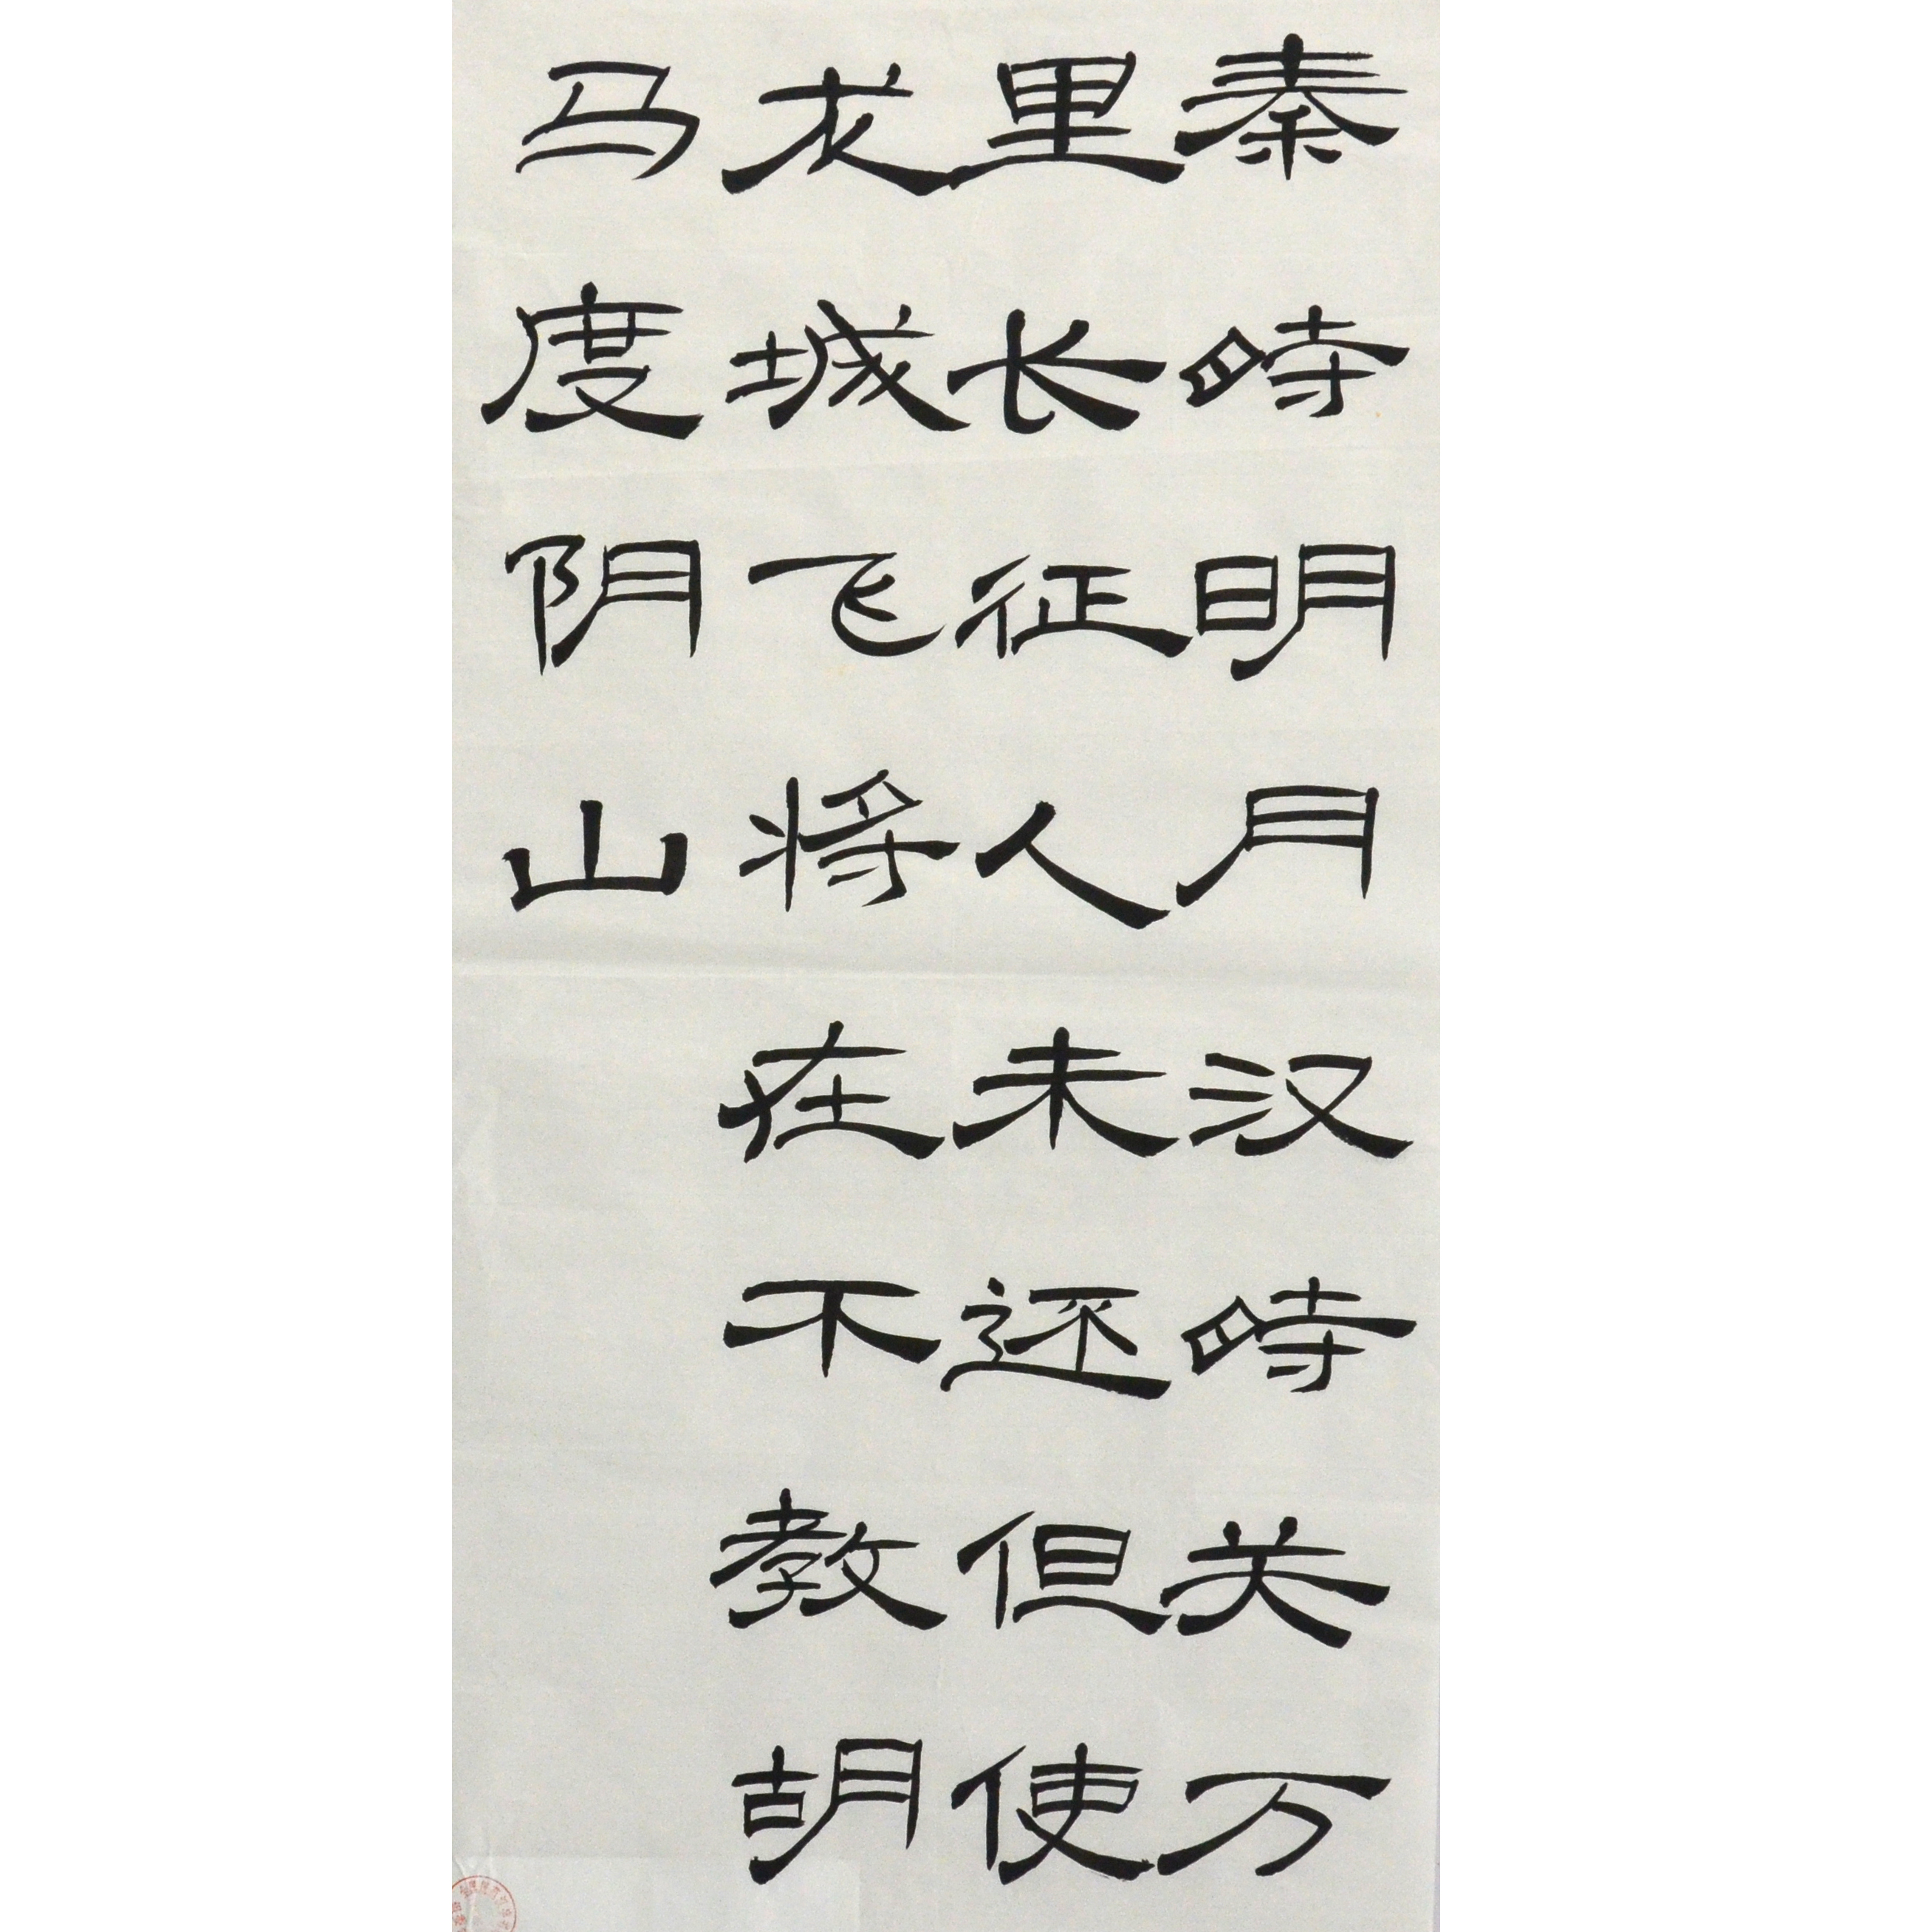 秦時明月汉時关万
里长征人未还但使
龙城飞将在不教胡
马度阴山